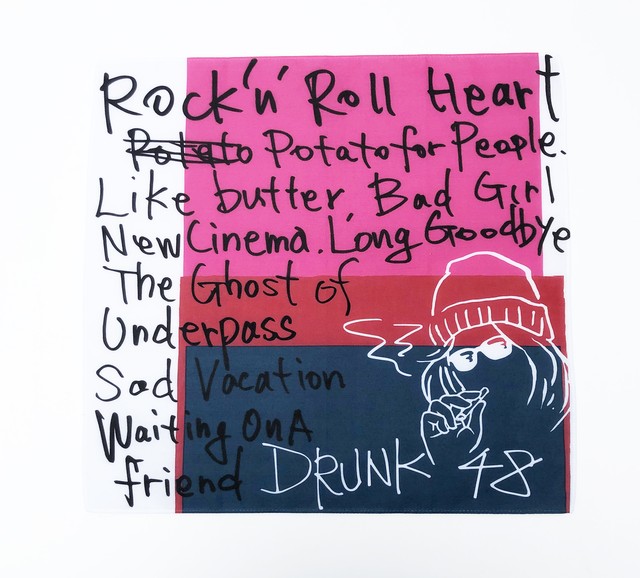 Rock'n' Roll Heart
Potato Potato for People.
Like butter, Bad Girl
New Cinema. Long Goodbye
The Ghost of
Underpass
Sad Vacation
Waiting On A
friend
DRUNK 48